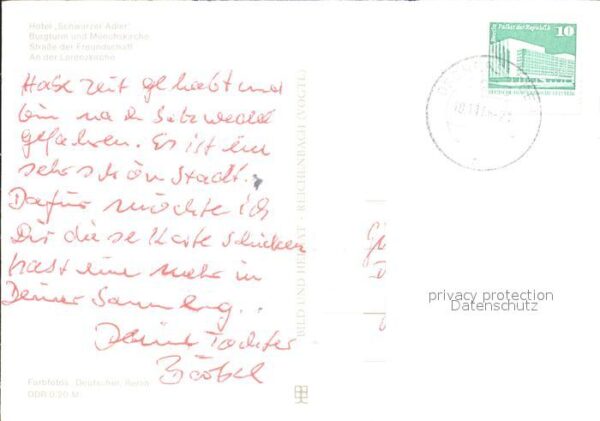 Hotel „Schwarzer Adler"
Burgturm und Mönchskirche
Straße der Freundschaft
An der Lorenzkirche
Habe Zeit gehabt und
bin nach Salzwedel
gefahren. Es ist ein
sehr schön Stadt.
Dafür möchte ich
Dir diese Karte schicken
hast eine mehr in
Deiner Sammlung..
Deine Tochter
Bärbel
Farbfotos: Deutscher, Berlin
DDR 0,20 M
BILD UND HEIMAT · REICHENBACH (VOGTL)
Palast der Republik
10
privacy protection
Datenschutz